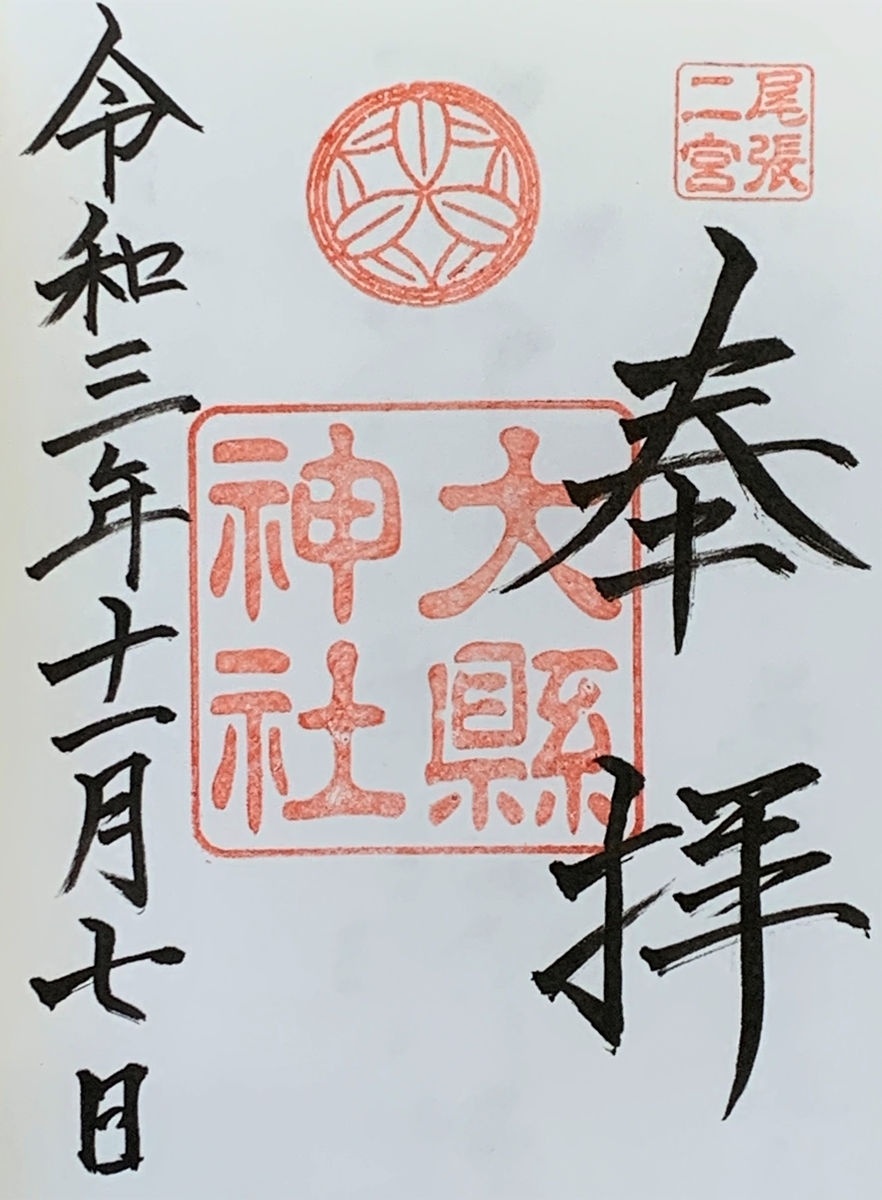 尾張
二宮
奉拝
大縣
神社
令和三年十一月七日